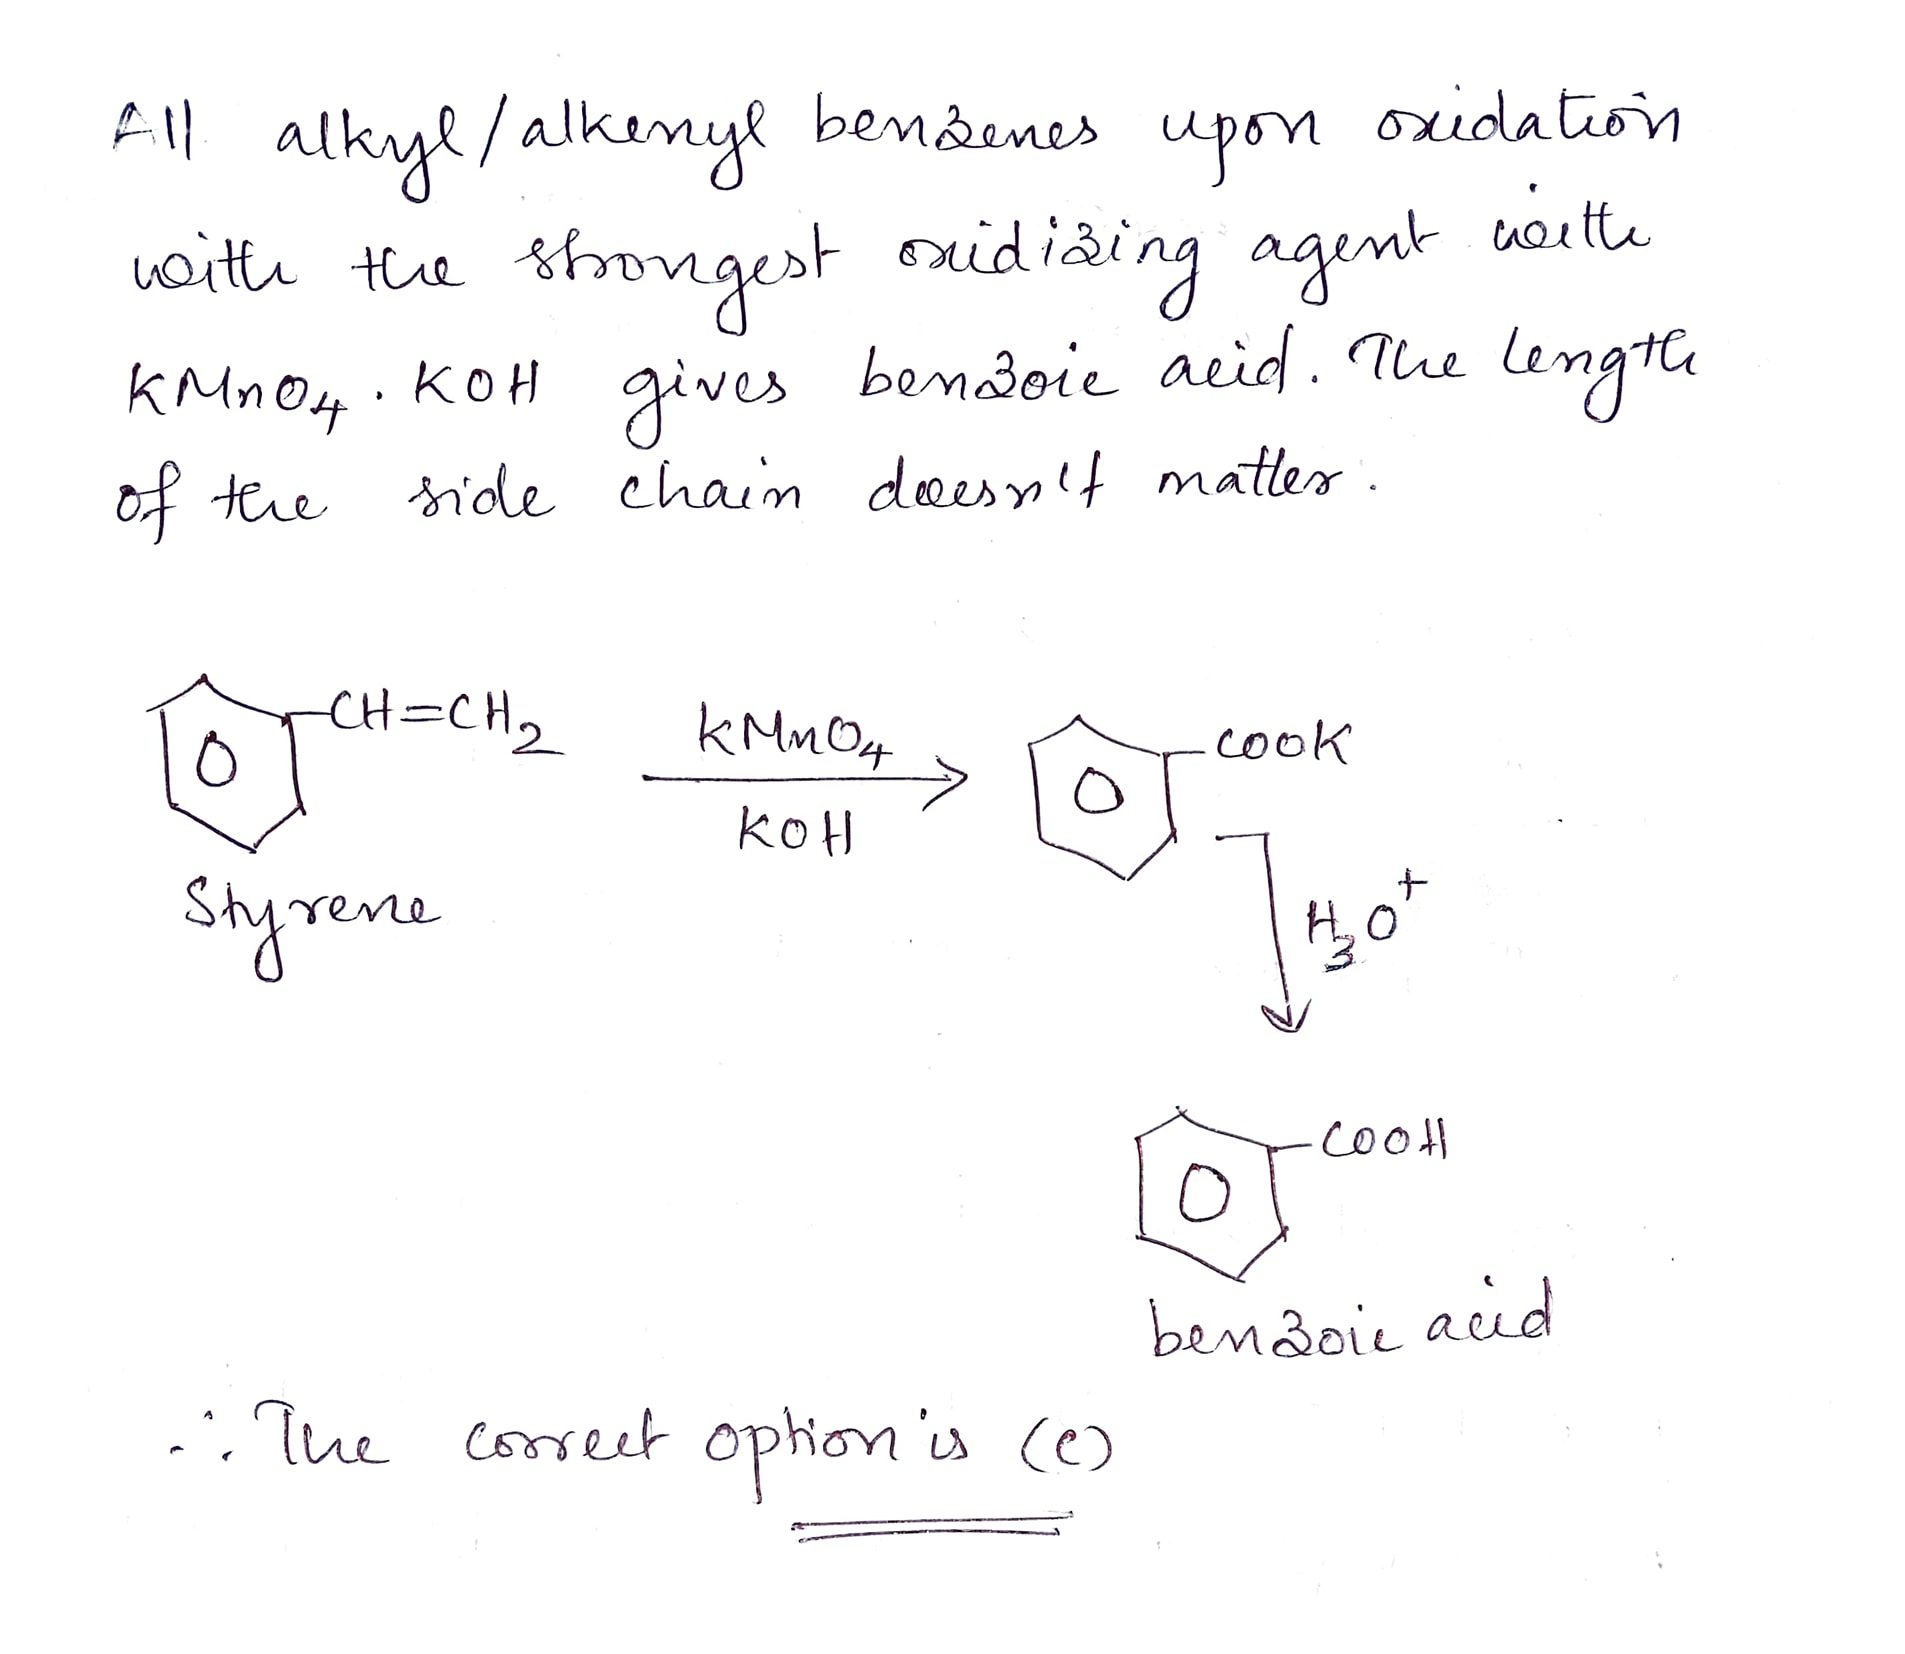 All alkyl/alkenyl benzenes upon oxidation
with the strongest oxidizing agent with
KMnO4. KOH gives benzoic acid. The length
of the side chain doesn't matter.
CH=CH2
KMnO4
COOK
KOH
Styrene
H3O+
COOH
benzoic acid
∴ The correct option is (c)